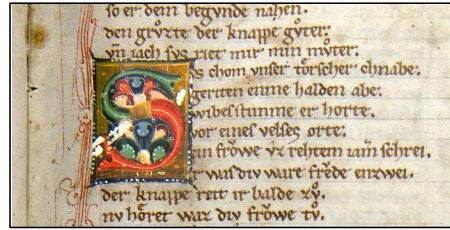 so er dem begvnde nahen.
den grůzte der knappe gůter.
vñ iach svs riet mir min můter.
Svs chom vnser torscher chnabe.
geriten einne halden abe.
wibes stimme er horte.
vor eines velses orte.
in frŏwe vz rehtem iam̄ schrei.
r was div ware frŏde enzwei.
der knappe reit ir balde zů.
nv hŏret waz div frŏwe tů.